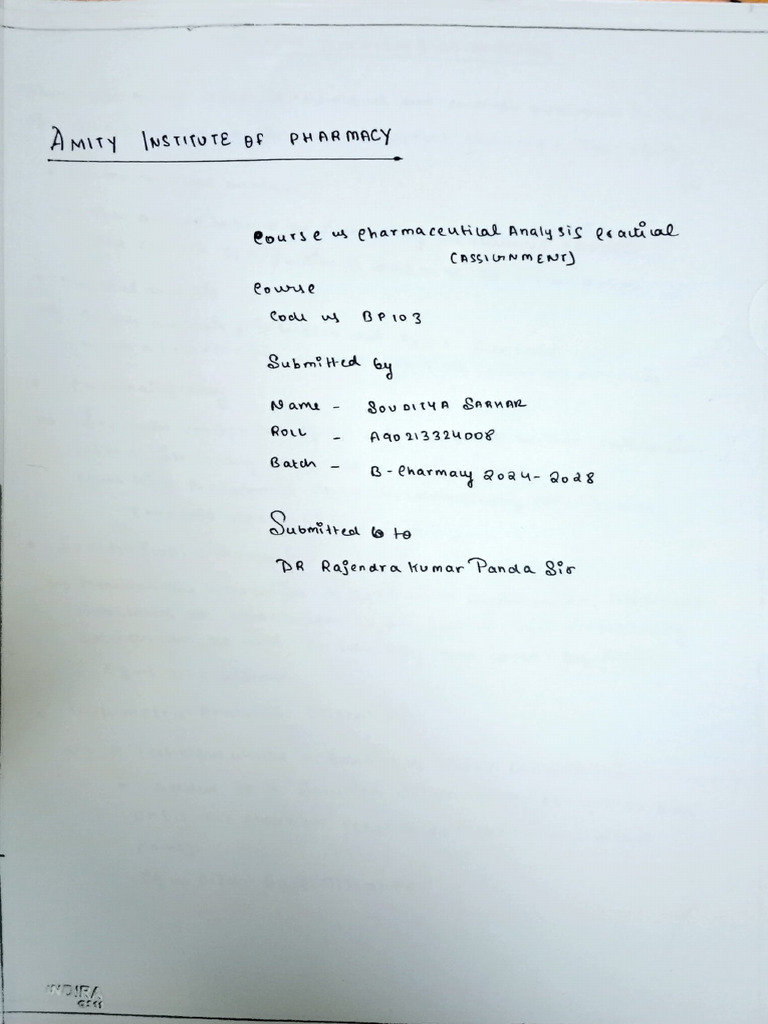 AMITY INSTITUTE OF PHARMACY
Course is Pharmaceutical Analysis Practical
(ASSIGNMENT)
Course
Code is BP103
Submitted by
Name - SOUDITYA SARKAR
ROLL - A90213324008
Batch - B-Pharmacy 2024-2028
Submitted to
DR Rajendra Kumar Panda Sir
INDIRA